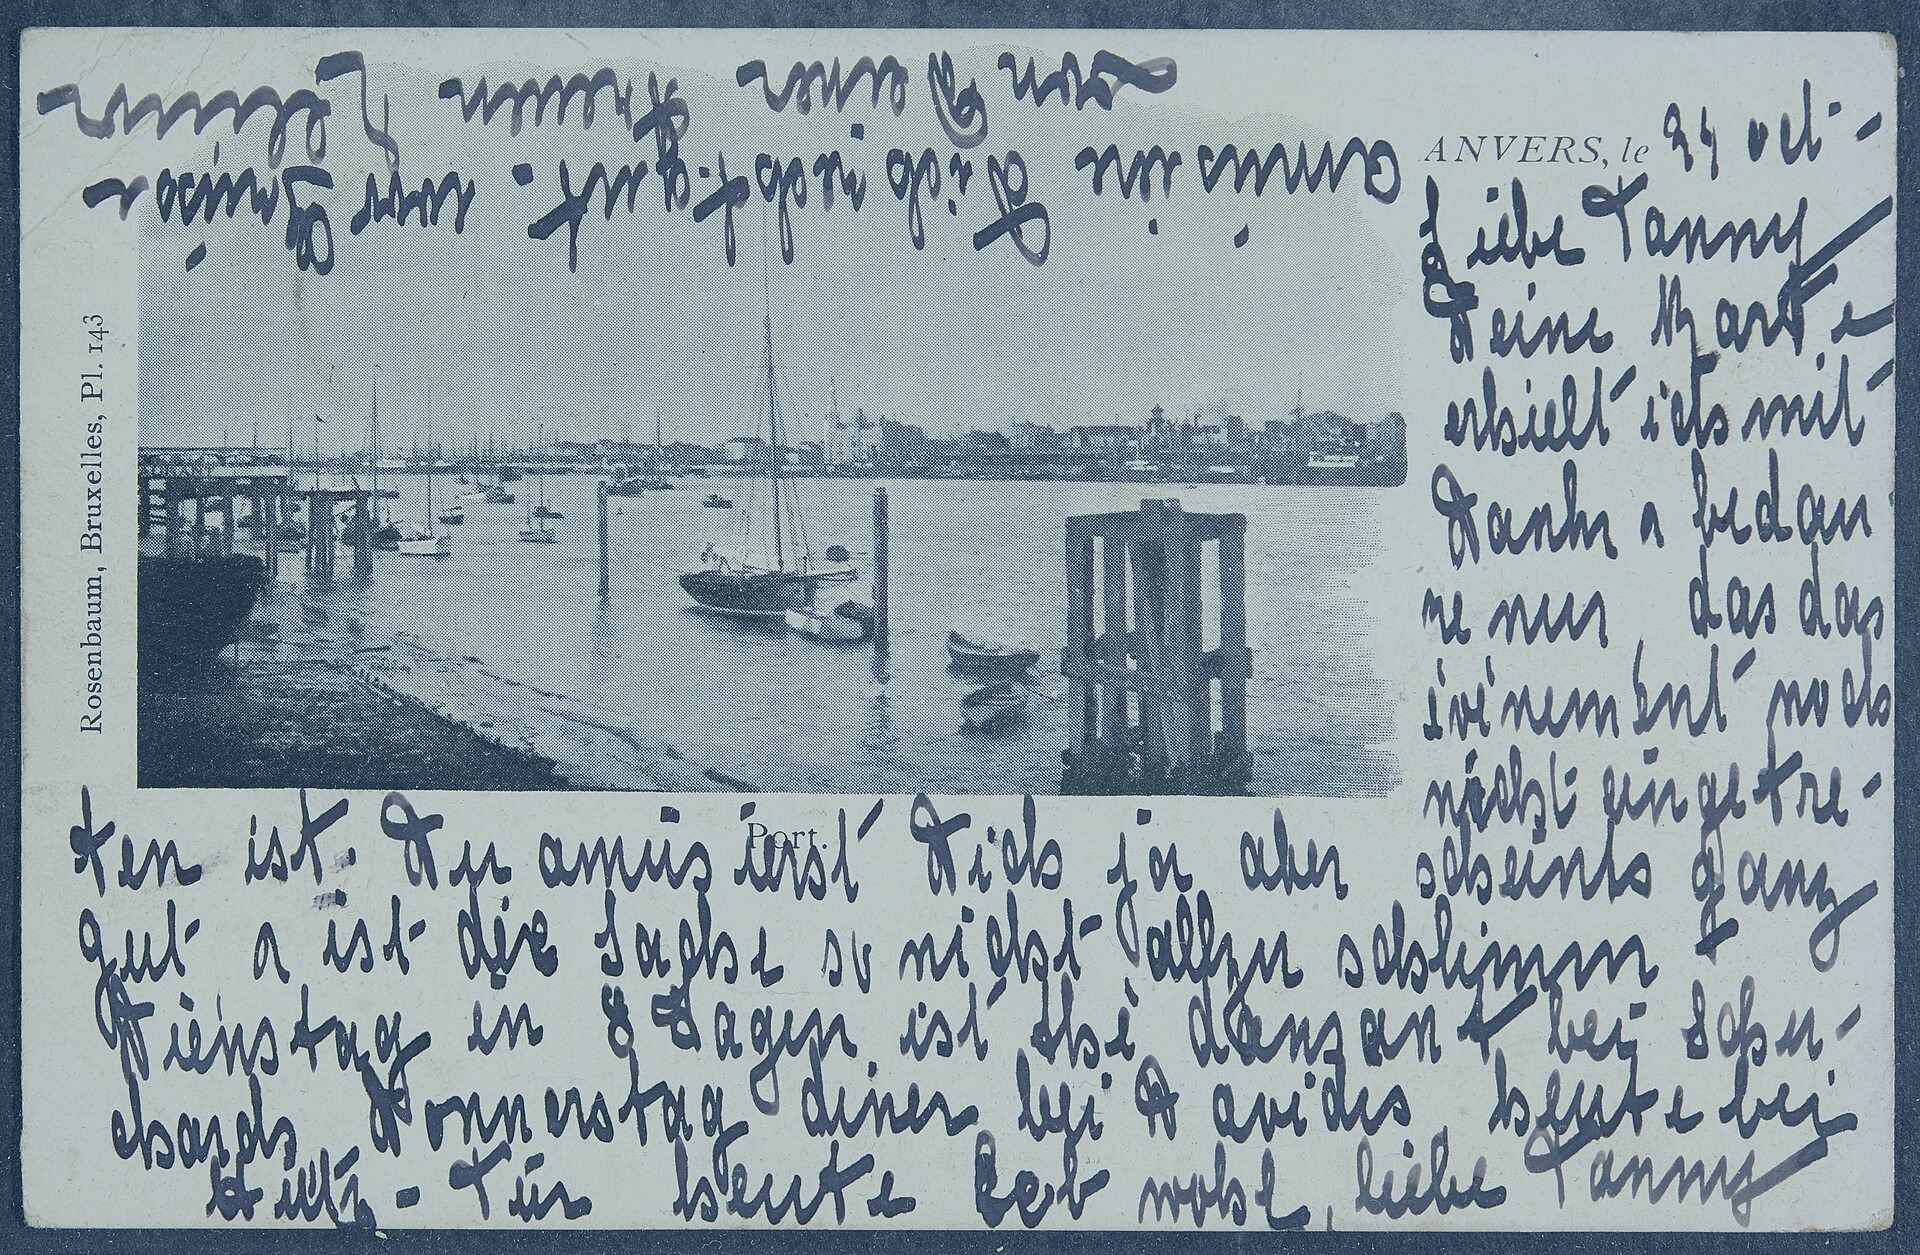 ANVERS, le 24 oct -
Liebe Fanny
Deine Karte
erhielt ich mit
Dank & bedau
re nur, das das
événement noch
nicht eingetre-
ten ist. Du amüsierst Dich ja aber scheints ganz
gut & ist die Sache so nicht allzu schlimm
Dienstag in 8 Tagen ist thé dansant bei Schu-
chards, Donnerstag diner bei Davidis, heute bei
Für heute leb wohl, liebe Fanny
amüsire Dich recht gut. wir
von Deiner treuen
Port.
Rosenbaum, Bruxelles, Pl. 143